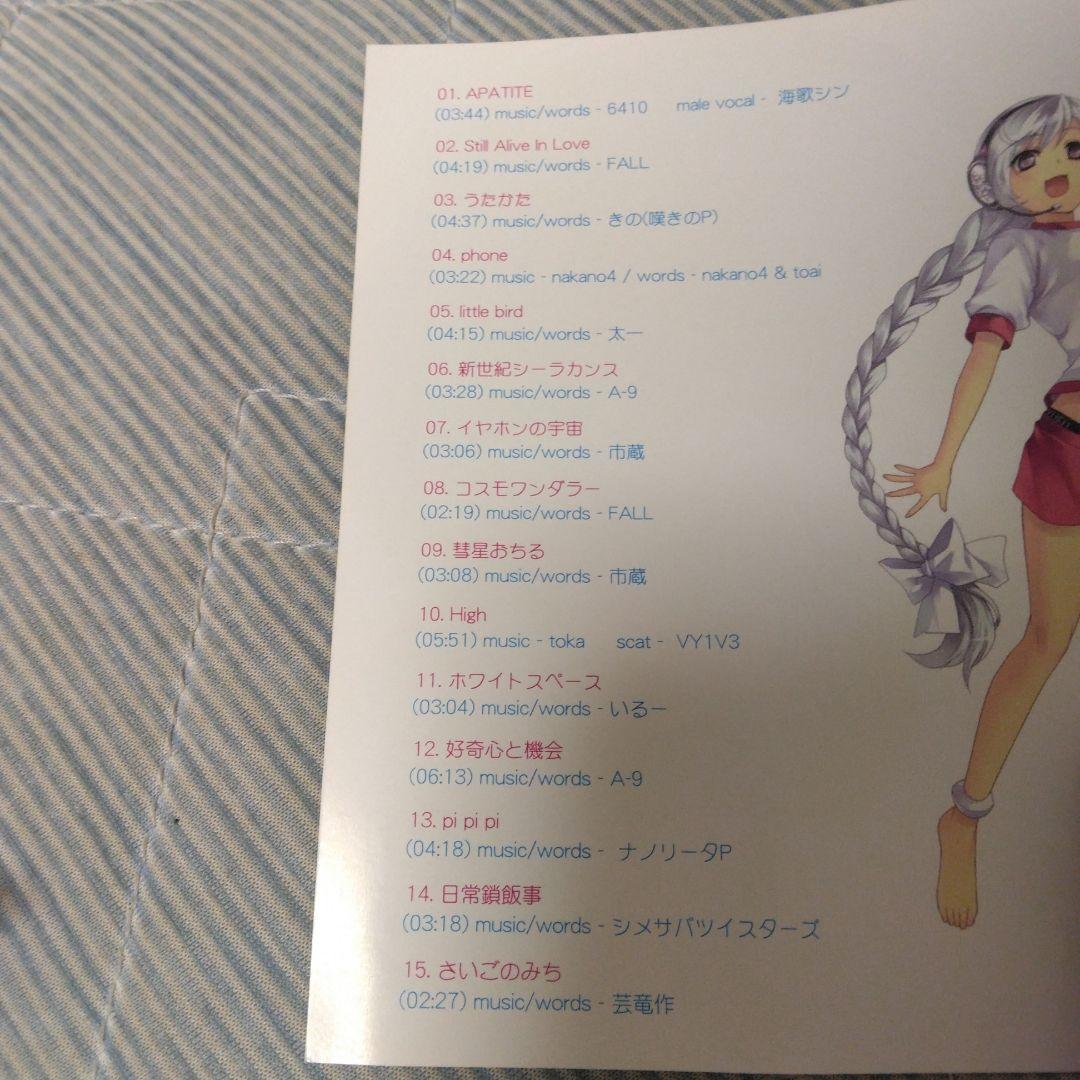 01. APATITE
(03:44) music/words - 6410 male vocal - 海歌シン
02. Still Alive In Love
(04:19) music/words - FALL
03. うたかた
(04:37) music/words - きの(嘆きのP)
04. phone
(03:22) music - nakano4 / words - nakano4 & toai
05. little bird
(04:15) music/words - 太一
06. 新世紀シーラカンス
(03:28) music/words - A-9
07. イヤホンの宇宙
(03:06) music/words - 市蔵
08. コスモワンダラー
(02:19) music/words - FALL
09. 彗星おちる
(03:08) music/words - 市蔵
10. High
(05:51) music - toka scat - VY1V3
11. ホワイトスペース
(03:04) music/words - いるー
12. 好奇心と機会
(06:13) music/words - A-9
13. pi pi pi
(04:18) music/words - ナノリータP
14. 日常鎖飯事
(03:18) music/words - シメサバツイスターズ
15. さいごのみち
(02:27) music/words - 芸竜作